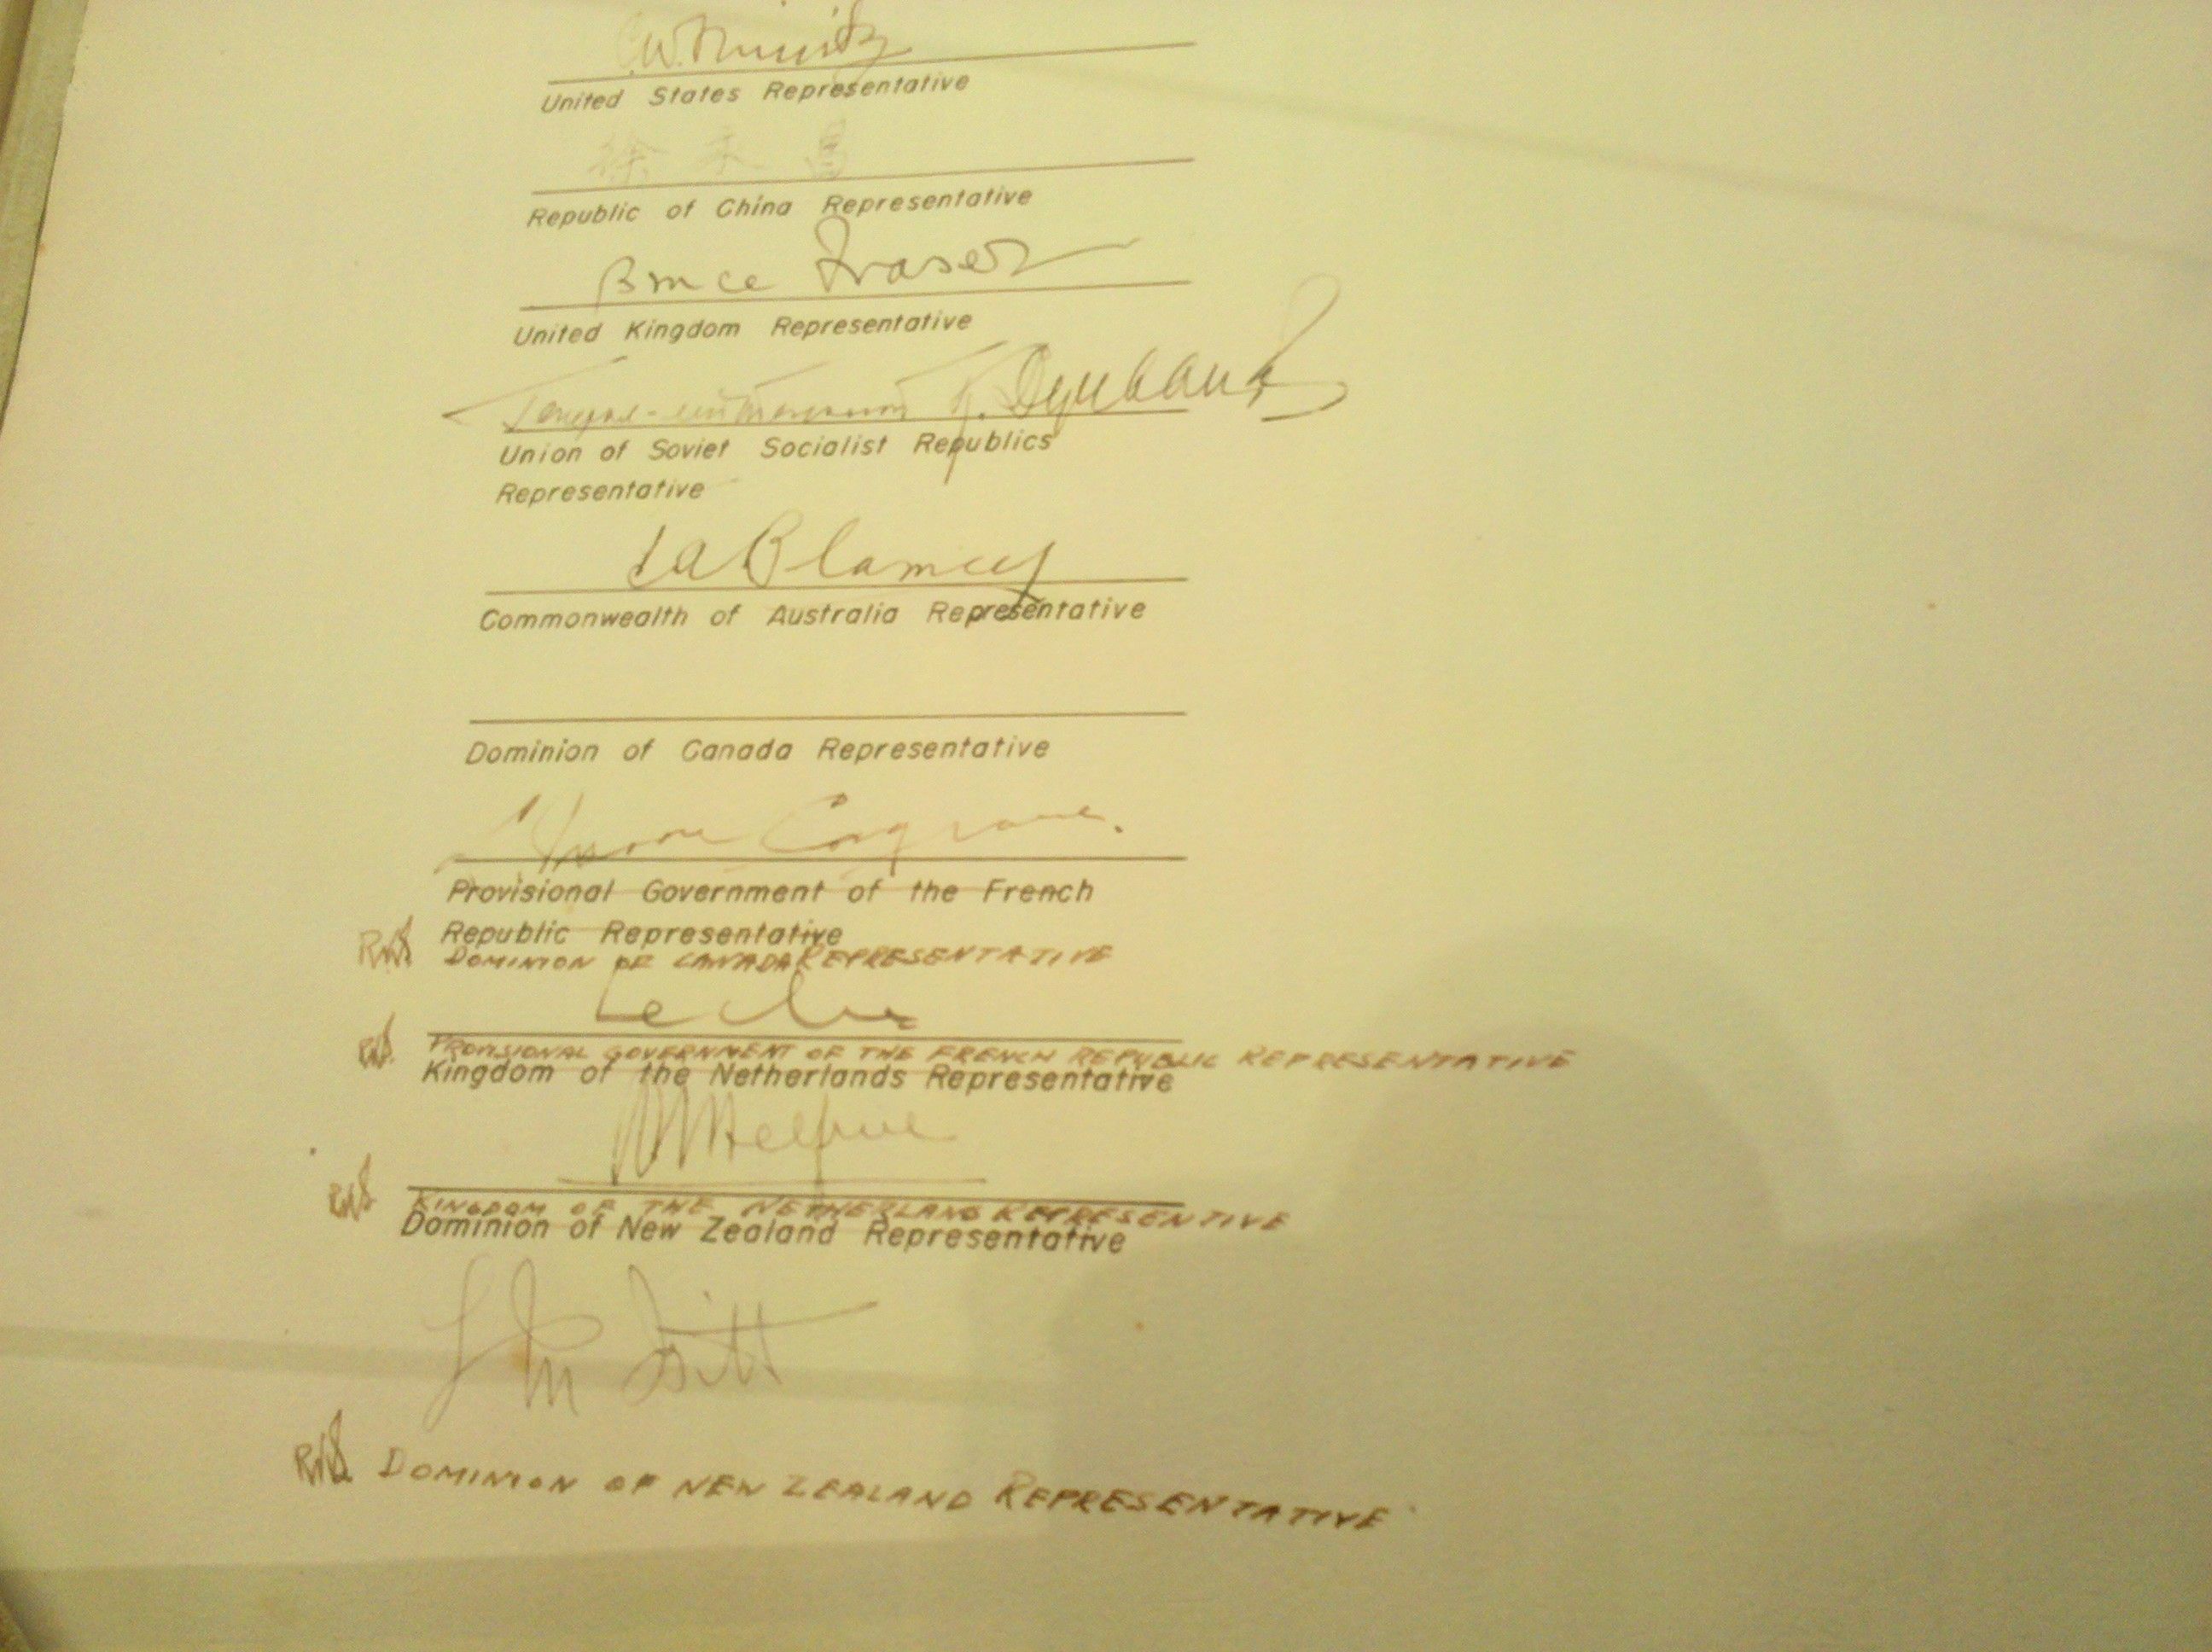 C.W. Nimitz
United States Representative
徐永昌
Republic of China Representative
Bruce Fraser
United Kingdom Representative
Генерал-лейтенант К. Деревянко
Union of Soviet Socialist Republics
Representative
T a Blamey
Commonwealth of Australia Representative
Dominion of Canada Representative
Moore Cosgrave.
Provisional Government of the French
Republic Representative
RKS DOMINION OF CANADA REPRESENTATIVE
Leclerc
RKS. PROVISIONAL GOVERNMENT OF THE FRENCH REPUBLIC REPRESENTATIVE
Kingdom of the Netherlands Representative
Helfrich
RKS KINGDOM OF THE NETHERLAND REPRESENTIVE
Dominion of New Zealand Representative
L M Isitt
RKS DOMINION OF NEW ZEALAND REPRESENTATIVE